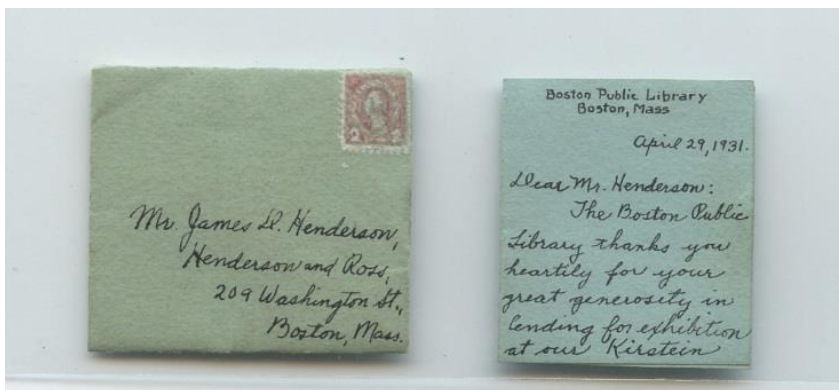 Mr. James D. Henderson,
Henderson and Ross,
209 Washington St.,
Boston, Mass.
Boston Public Library
Boston, Mass
April 29, 1931.
Dear Mr. Henderson:
The Boston Public
Library thanks you
heartily for your
great generosity in
lending for exhibition
at our Kirstein